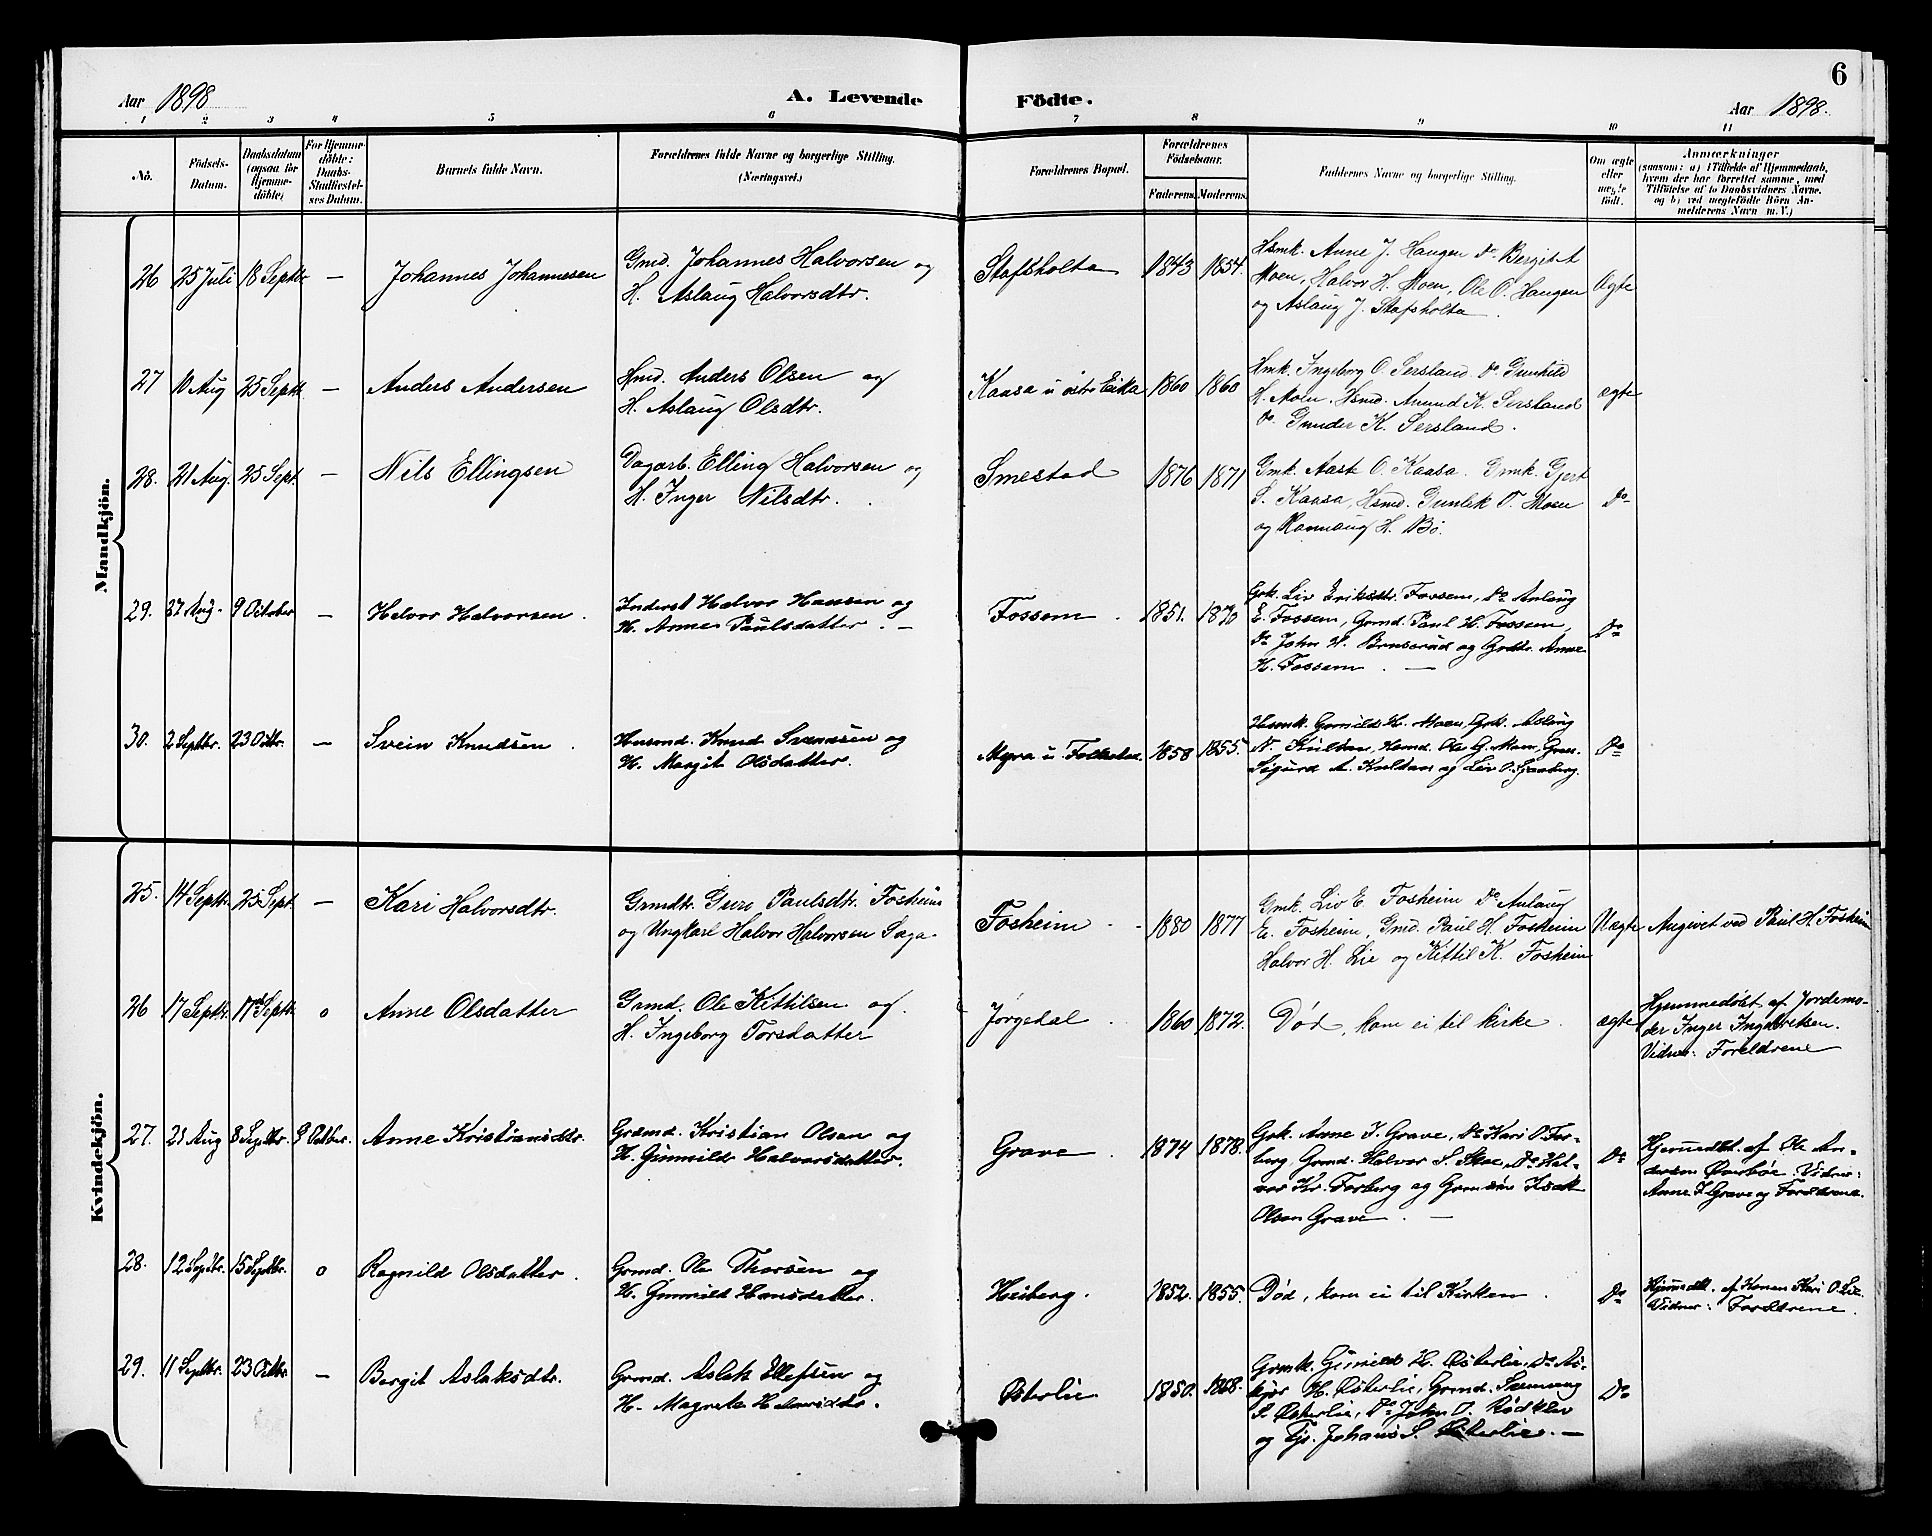 6
Aar 1898
A. Levende Födte.
Aar 1898.
1 2 3 4 5 6 7 8 9 10 11
No.
Födsels-Datum.
Daabsdatum (ogsaa for Hjemmedöbte)
For Hjemmedöbte: Daabs-Stadfæstelses Datum.
Barnets fulde Navn.
Forældrenes fulde Navne og borgerlige Stilling. (Næringsvei.)
Forældrenes Bopæl.
Forældrenes Födselsaar.
Faderens. Moderens.
Faddernes Navne og borgerlige Stilling.
Om ægte eller uægte födt.
Anmærkninger
(saasom: a) i Tilfælde af Hjemmedaab,
hvem der har forrettet samme, med
Tilföielse af to Daabsvidners Navne.
og b) ved uægtefödte Börn An-
melderens Navn m. V.)
Mandkjön.
26 25 Juli 18 Septbr — Johannes Johannesen
Gmd. Johannes Halvorsen og
H. Aslaug Halvorsdtr.
Stafsholta 1843 1854.
Hsmk. Anne J. Haugen Do Bergit
Moen, Halvor H. Moen, Ole O. Haugen
og Aslaug J. Stafsholta.
Ægte
27 10 Aug 25 Septbr — Anders Andersen
Hmd. Anders Olsen og
H. Aslaug Olsdtr.
Kaasa u østre Eika 1860 1860
Hmk. Ingeborg O. Sersland Do Gunhild
H. Moen, Hsmd. Amund K. Sersland
Do. Gunder K. Sersland.
ægte
28. 21 Aug. 25 Sept. — Nils Ellingsen
Dagarb. Elling Halvorsen og
H. Inger Nilsdtr.
Smestad 1876 1871
Gmk. Aaste O. Kaasa. Gmk. Gjert
S. Kaasa, Hsmd. Gunlek O. Moen
og Rannaug H. Bö.
Do
29. 27 Aug. 9 October — Halvor Halvorsen.
Inderst Halvor Hansen og
H. Anne Paulsdatter. —
Fossem. 1851. 1870
Gdk. Liv Eriksdtr. Fossem, Do Anlaug
E. Fossem, Grmd. Paul H. Fossem,
Do John H. og Grdtr. Anne
K. Fossem. —
Do
30. 2 Septbr. 23 Octbr. — Svein Knudsen.
Husmd. Knud Svennsen og
H. Margit Olsdatter.
Myra u. Folkestad. 1858 1855.
Husmk. Gunild H. Moen, Gdk. Aslaug
N. Kultan, Husmd. Ole G. Moen,
Sigurd A. Kultan og Liv O.
Do
Kvindekjön.
25. 14 Septbr. 25 Sept. — Kari Halvorsdtr.
Grmdtr. Guro Paulsdtr. Fosheim
og Ungkarl Halvor Halvorsen Saga.
Fosheim. 1880 1877
Gmk. Liv E. Fosheim Do Anlaug
E. Fosheim, Gmd. Paul H. Fosheim
Halvor H. Lie og Kittil K. Fosheim
Uægte Angivet ved Paul H. Fosheim
26 17 Septbr. 17de Septbr. o Anne Olsdatter
Grmd. Ole Kittilsen og.
H. Ingeborg Torsdatter
Jörgedal. 1860 1872.
Død, kom ei til kirke.
ægte
Hjemmedøbt af Jordemo-
der Inger Ingebretsen.
Vidner: Foreldrene
27. 21 Aug 8 Septbr. 9 Octber. Anne Kristiansdtr.
Grdmd. Kristian Olsen og
H. Gunnild Halvorsdatter.
Grave. 1874 1878.
Gdk. Anne I. Grave, Do Kari O For-
berg, Grmd. Halvor S. Skoe, Do Hal-
vor Kr. Forberg og Grmsön Isak
Olsen Grave. —
Do
Hjemmedbt. af Ole An-
dersen Øverbøe. Vidner:
Anne I Grave og Forældrene.
28. 12 Septbr. 15 Septbr. o Ragnild Olsdatter.
Grmd. Ole Thorsen og
H. Gunnild Hansdatter.
Heiberg. 1852. 1855.
Död, kom ei til Kirken.
Do
Hjemdbt. af Konen Kari O. Lie.
Vidner: Forældrene.
29. 11 Septbr. 23 Octbr — Bergit Aslaksdtr.
Grmd. Aslak Ellefsen og
H. Magrete Halvorsdtr.
Østerlie 1850. 1868.
Grmk. Gunnild H. Østerlie, Do As-
kjer H. Østerlie, Grmd. Sveinung
S. Østerlie, Do John O. Rødklev
og Tjs. Johans S. Østerlie. —
Do